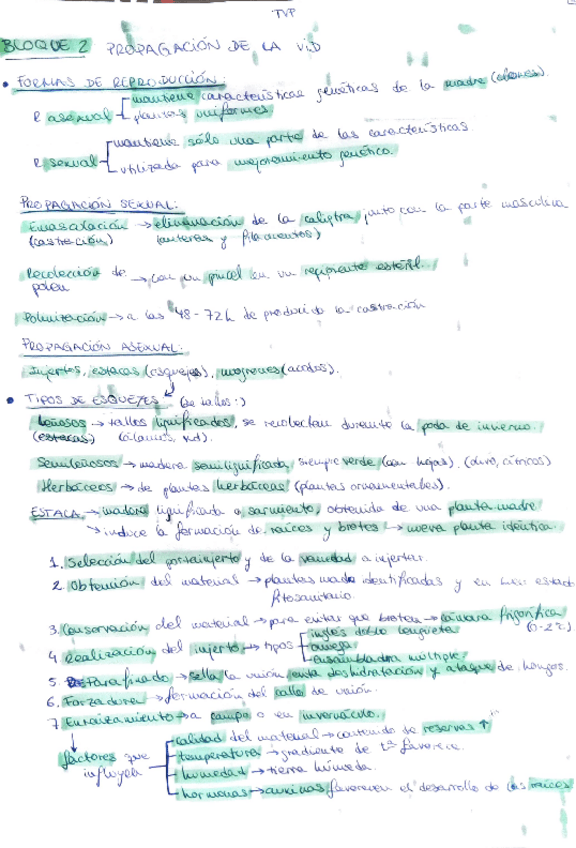 TVP
BLOQUE 2 PROPAGACIÓN DE LA VID
• FORMAS DE REPRODUCCIÓN:
R asexual mantiene características genéticas de la madre (clones).
plantas uniformes
R sexual mantiene sólo una parte de las características.
utilizada para mejoramiento genético.
PROPAGACIÓN SEXUAL:
Emasculación → eliminación de la caliptra junto con la parte masculina
(castración) (anteras y filamentos)
Recolección de polen → con un pincel en un recipiente estéril.
Polinización → a las 48-72h de producido la castración
PROPAGACIÓN ASEXUAL:
Injertos, estacas (esquejes), mugrones (acodos).
• TIPOS DE ESQUEJES (de tallos:)
leñosos → tallos lignificados, se recolectan durante la poda de invierno.
(estacas) (álamos, vid).
Semileñosos → madera semilignificada, siempre verde (con hojas). (olivo, cítricos)
Herbáceos → de plantas herbáceas (plantas ornamentales).
ESTACA → madera lignificada o sarmiento, obtenida de una planta madre
→ induce la formación de raíces y brotes → nueva planta idéntica.
1. Selección del portainjerto y de la variedad a injertar.
2. Obtención del material → plantas madre identificadas y en buen estado
fitosanitario.
3. Conservación del material → para evitar que broten → cámara frigorífica
(0-2°C)
4. Realización del injerto → tipos inglés doble lengüeta
omega
ensambladora múltiple
5. Parafinado → sella la unión, evita deshidratación y ataque de hongos.
6. Forzadura → formación del callo de unión.
7. Enraizamiento → a campo o en invernáculo.
factores que influyen calidad del material → contenido de reservas ↑
temperatura → gradiente de tª favorece.
humedad → tierra húmeda.
hormonas → auxinas favorecen el desarrollo de las raíces